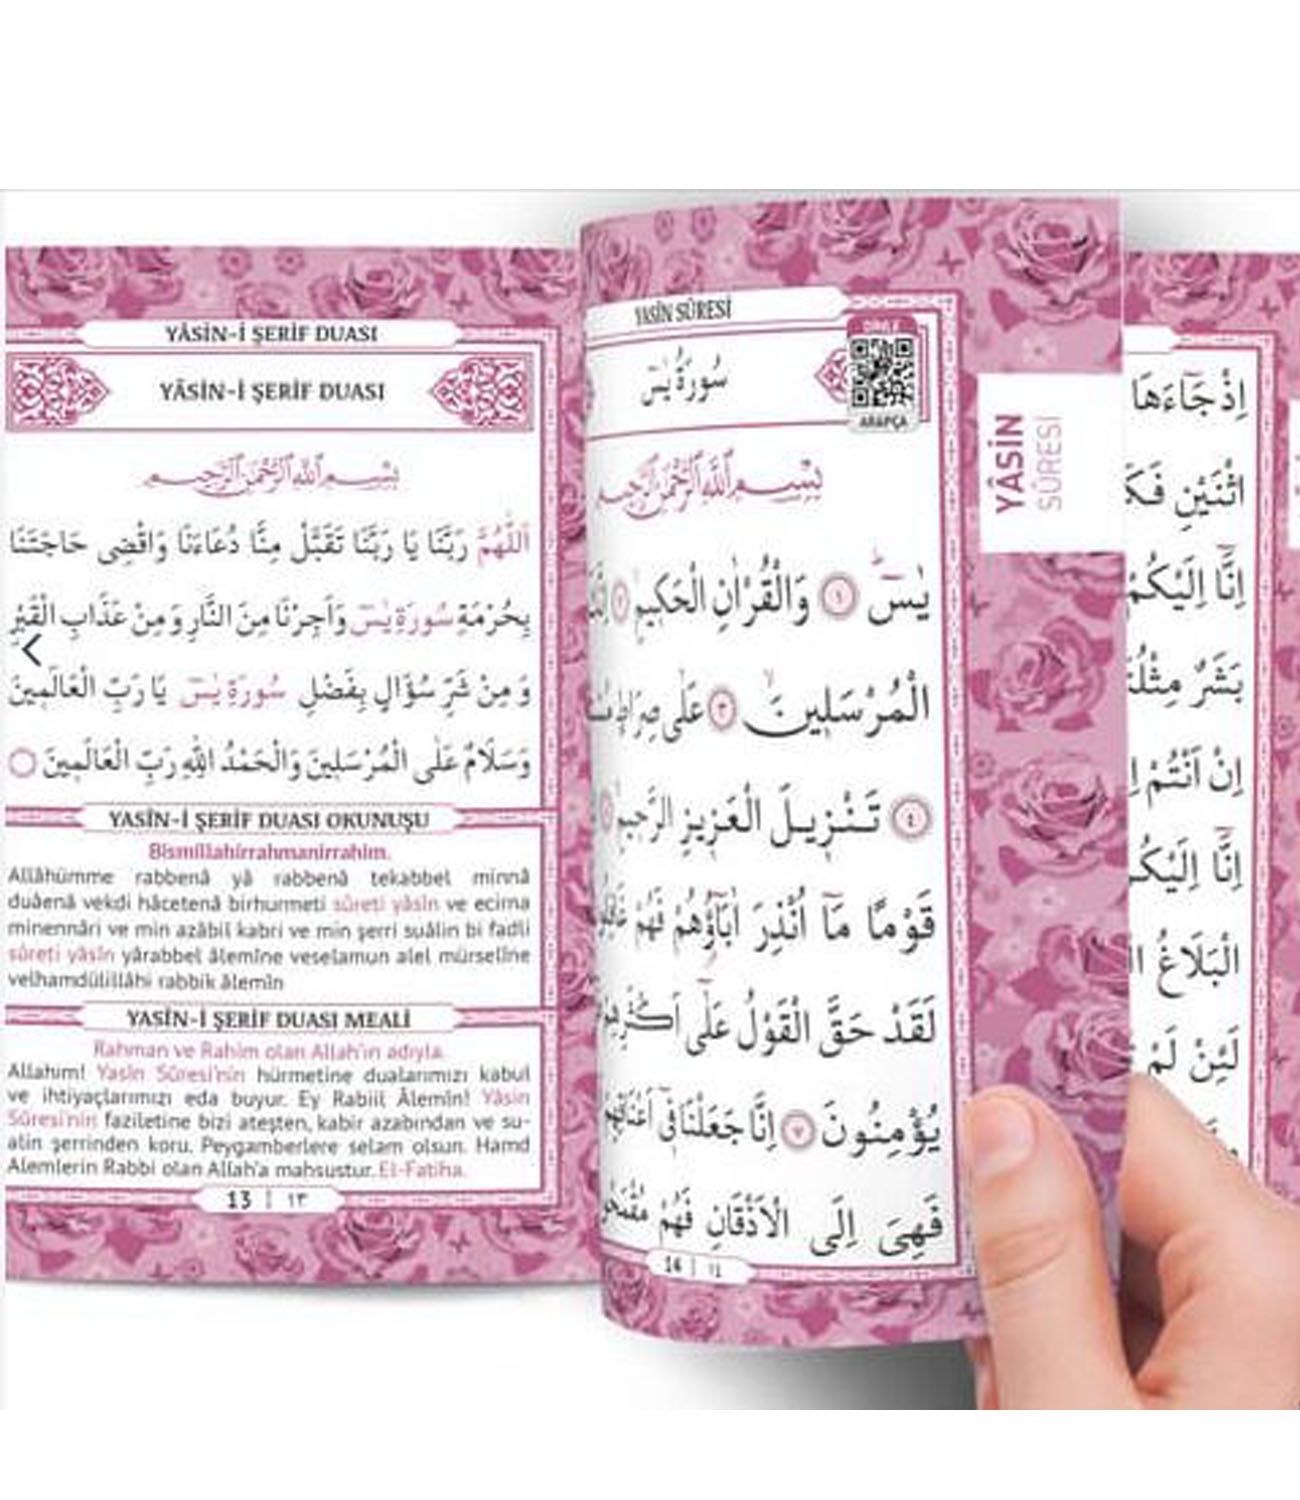 YÂSİN-İ ŞERİF DUASI
YÂSİN-İ ŞERİF DUASI
بِسْمِ اللهِ الرَّحْمٰنِ الرَّحِيمِ
اَللّٰهُمَّ رَبَّنَا يَا رَبَّنَا تَقَبَّلْ مِنَّا دُعَاءَنَا وَاقْضِى حَاجَتَنَا
بِحُرْمَةِ سُورَةِ يٰسٓ وَاَجِرْنَا مِنَ النَّارِ وَ مِنْ عَذَابِ الْقَبْرِ
وَ مِنْ شَرِّ سُؤَالٍ بِفَضْلِ سُورَةِ يٰسٓ يَا رَبِّ الْعَالَمِينَ
وَسَلَامٌ عَلَى الْمُرْسَلِينَ وَالْحَمْدُ لِلّٰهِ رَبِّ الْعَالَمِينَ
YASİN-İ ŞERİF DUASI OKUNUŞU
Bismillahirrahmanirrahim.
Allâhümme rabbenâ yâ rabbenâ tekabbel minnâ
duâenâ vekdi hâcetenâ birhurmeti sûreti yâsîn ve ecirna
minennâri ve min azâbil kabri ve min şerri suâlin bi fadli
sûreti yâsîn yârabbel âlemîne veselamun alel mürselîne
velhamdülillâhi rabbik âlemîn
YASİN-İ ŞERİF DUASI MEALİ
Rahman ve Rahim olan Allah'ın adıyla.
Allahım! Yasîn Sûresi'nin hürmetine dualarımızı kabul
ve ihtiyaçlarımızı eda buyur. Ey Rabiil Âlemîn! Yâsin
Sûresi'nin faziletine bizi ateşten, kabir azabından ve su-
alin şerrinden koru. Peygamberlere selam olsun. Hamd
Alemlerin Rabbi olan Allah'a mahsustur. El-Fatiha.
13 | ١٣
YASİN SÛRESİ
سُورَةُ يٰسٓ
DİNLE
ARAPÇA
بِسْمِ اللهِ الرَّحْمٰنِ الرَّحِيمِ
يٰسٓ ١ وَالْقُرْاٰنِ الْحَكِيمِ ٢
الْمُرْسَلِينَ ٣ عَلٰى صِرَاطٍ
٤ تَنْزِيلَ الْعَزِيزِ الرَّحِيمِ
قَوْمًا مَٓا اُنْذِرَ اٰبَٓاؤُهُمْ فَهُمْ
لَقَدْ حَقَّ الْقَوْلُ عَلٰٓى اَكْثَرِهِمْ
يُؤْمِنُونَ ٧ اِنَّا جَعَلْنَا فٓى اَعْنَاقِهِمْ
فَهِىَ اِلَى الْاَذْقَانِ فَهُمْ
YÂSİN
SÛRESİ
اِذْ جَٓاءَهَا
اثْنَيْنِ
اِنَّٓا اِلَيْكُمْ
بَشَرٌ
اِنْ اَنْتُمْ
اِنَّٓا
الْبَلَاغُ
لَئِنْ لَمْ